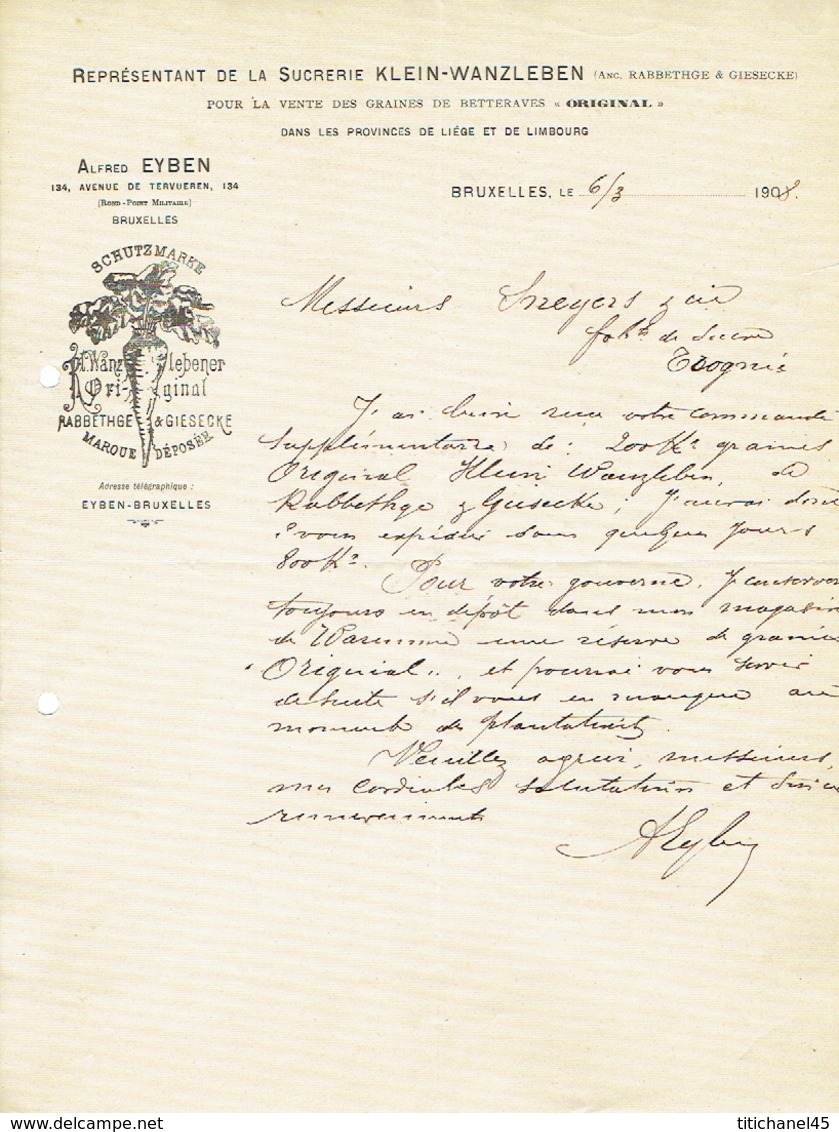 REPRÉSENTANT DE LA SUCRERIE KLEIN-WANZLEBEN (ANC. RABBETHGE & GIESECKE)
POUR LA VENTE DES GRAINES DE BETTERAVES « ORIGINAL »
DANS LES PROVINCES DE LIÉGE ET DE LIMBOURG
ALFRED EYBEN
134, AVENUE DE TERVUEREN, 134
(ROND-POINT MILITAIRE)
BRUXELLES
BRUXELLES, LE 6/3 1908.
SCHUTZMARKE
Kl. Wanzlebener
Original
RABBETHGE & GIESECKE
MARQUE DÉPOSÉE
Adresse télégraphique :
EYBEN-BRUXELLES
Messieurs Sneyers & cie
de Sucre
Trognée
J'ai bien reçu votre commande
supplémentaire de : 200 Ks graines
Original Klein Wanzleben, de
Rabbethge & Giesecke ; J'aurai donc
à vous expédier dans quelques jours
800 Ks
Pour votre gouverne, J'conserve
toujours en dépôt dans mon magasin
de Waremme une réserve de graines
"Original", et pourrai vous servir
de suite s'il vous en manque au
moment des plantations.
Veuillez agréer, messieurs,
mes cordiales salutations et
remerciements
AEyben
titichanel45